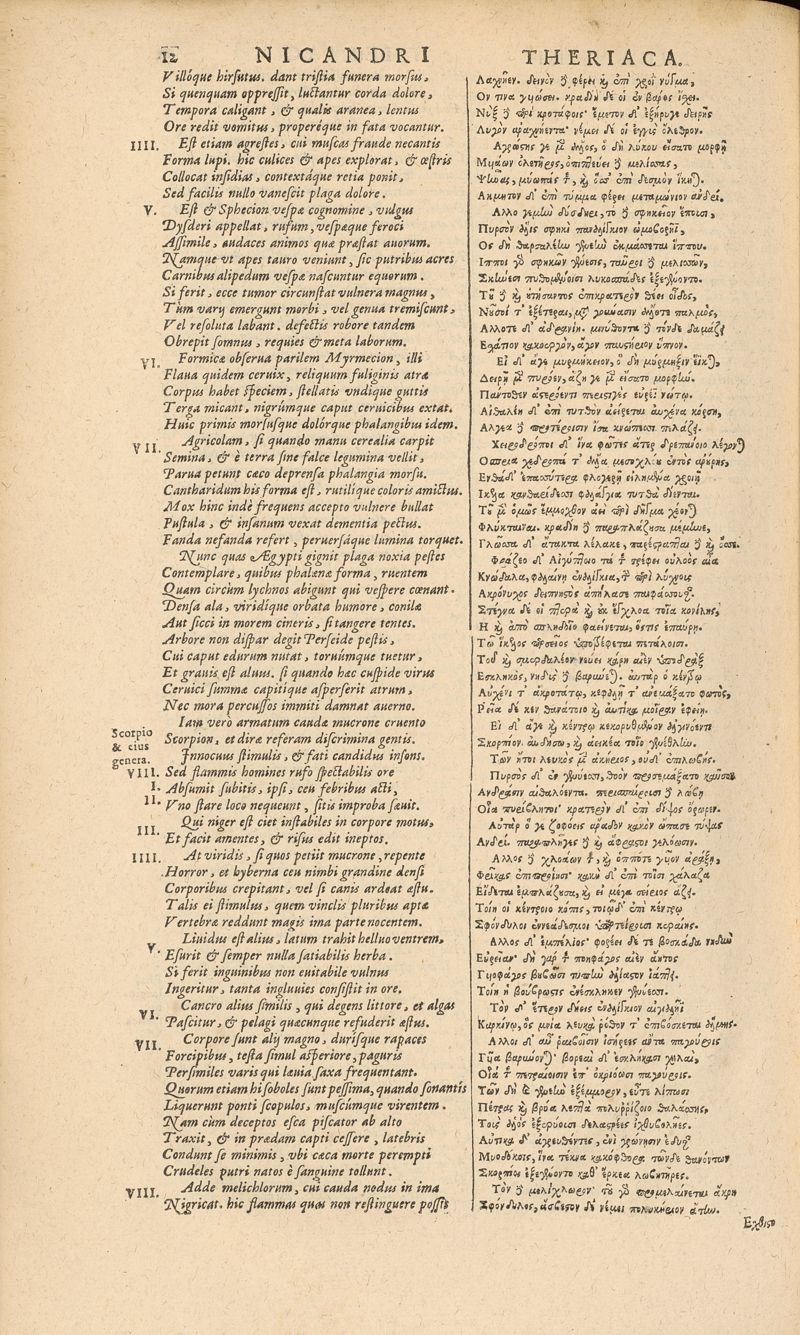 12 NICANDRI THERIACA.
Villóque hirsutus. dant tristia funera morsus,
Si quenquam oppressit, luctantur corda dolore,
Tempora caligant, & qualis aranea, lentus
Ore redit vomitus, properéque in fata vocantur.
IIII. Est etiam agrestes, cui muscas fraude necantis
Forma lupi. hic culices & apes explorat, & œstris
Collocat insidias, contextáque retia ponit,
Sed facilis nullo vanescit plaga dolore.
V. Est & Sphecion vespæ cognomine, vulgus
Dysderi appellat, rufum, vespæque feroci
Assimile, audaces animos quæ præstat auorum.
Namque vt apes tauro veniunt, sic putribus acres
Carnibus alipedum vespæ nascuntur equorum.
Si ferit, ecce tumor circunstat vulnera magnus,
Tùm varij emergunt morbi, vel genua tremiscunt,
Vel resoluta labant. defectis robore tandem
Obrepit somnus, requies & meta laborum.
VI. Formicæ obserua parilem Myrmecion, illi
Flaua quidem ceruix, reliquum fuliginis atræ
Corpus habet speciem, stellatis vndique guttis
Terga micant, nigrúmque caput ceruicibus extat.
Huic primis morsusque dolórque phalangibus idem.
VII. Agricolam, si quando manu cerealia carpit
Semina, & è terra sine falce legumina vellit,
Parua petunt cæco deprensa phalangia morsu.
Cantharidum his forma est, rutilique coloris amictus.
Mox hinc inde frequens accepto vulnere bullat
Pustula, & insanum vexat dementia pectus.
Fanda nefanda refert, peruersáque lumina torquet.
Nunc quas Ægypti gignit plaga noxia pestes
Contemplare, quibus phalænæ forma, ruentem
Quam circùm lychnos abigunt qui vespere cœnant.
Densa ala, viridique orbata humore, conilæ
Aut sicci in morem cineris, si tangere tentes.
Arbore non dispar degit Perseide pestis,
Cui caput edurum nutat, toruúmque tuetur,
Et grauis est aluus. si quando hac cuspide virus
Ceruici summæ capitique asperserit atrum,
Nec mora percussos immiti damnat auerno.
Iam verò armatum cauda mucrone cruento
Scorpio & eius genera. Scorpion, et diræ referam discrimina gentis.
Innocuus stimulis, & fati candidus insons.
VIII. Sed flammis homines rufo spectabilis ore
I. Absumit subitis, ipsi, ceu febribus acti,
II. Vno stare loco nequeunt, sitis improba sæuit.
Qui niger est ciet instabiles in corpore motus,
III. Et facit amentes, & risus edit ineptos.
IIII. At viridis, si quos petiit mucrone, repente
Horror, et hyberna ceu nimbi grandine densi
Corporibus crepitant, vel si canis ardeat æstu.
Talis ei stimulus, quem vinclis pluribus aptæ
Vertebræ reddunt magis ima parte nocentem.
Liuidus est alius, latum trahit helluo ventrem,
V. Esurit & semper nulla satiabilis herba.
Si ferit inguinibus non euitabile vulnus
Ingeritur, tanta ingluuies consistit in ore.
Cancro alius similis, qui degens littore, et algas
VI. Pascitur, & pelagi quæcunque refuderit æstus.
VII. Corpore sunt alij magno, durísque rapaces
Forcipibus, testa simul asperiore, paguris
Persimiles varis qui læuia saxa frequentant.
Quorum etiam hi soboles sunt pessima, quando sonantis
Liquerunt ponti scopulos, muscúmque virentem.
Nam cùm deceptos esca piscator ab alto
Traxit, & in prædam capti cessere, latebris
Condunt se minimis, vbi cæca morte perempti
Crudeles putri natos è sanguine tollunt.
VIII. Adde melichlorum, cui cauda nodus in ima
Nigricat. hic flammas quas non restinguere possis
Λαχνήεν. δεινὸν φέρει χροῒ νύγμα,
Ον τινα γυιώσει. κραδίη δέ οἱ ἐν βάρος ἴχει.
Νὺξ κροτάφοις· ἔμετον δ' ἐξήρυγε δειρῆς
Λυγρὸν ἀραχνήεντα· νέμει δέ οἱ ἐγγὺς ὄλεθρον.
Αγρώστης γε δήϊος, ὁ δὴ λύκου εἴσατο μορφῇ
Μυιάων ὀλετῆρος, ὀπιπεύει μελίσσας,
Ψῆνας, μύωπάς ἐπὶ δεσμὸν
Ακμητον δ' ἐπὶ τύμμα φέρει μεταμώνιον ἀνδρί.
Αλλο γεμὴν δύσδηρι, τὸ σφήκειον ἔπουσι,
Πυρσὸν
Ος δὴ θαρσαλέην γενεὴν ἐκμάσσεται ἵππου.
Ιπποι σφηκῶν γένεσις, ταῦροι μελισσῶν,
Σκήνεσι πυθομένοισι λυκοσπάδες ἐξεγένοντο.
οὐτήσαντος ἐπικρατερὸν θέει οἶδος,
Νοῦσοί τ' ἐξέτεραι,
Αλλοτε δ' ἀδρανίη. μινύθοντα τόνδε
Εσχάτιον κακοεργὸν, ἄγον παυστήριον ὕπνον.
Εἰ δ' ἄγε μυρμήκειον, ὁ δὴ μύρμηξιν
Δειρῇ πυρόεν, ἄζῃ γε εἴσατο μορφὴν.
Πάντοθεν ἀστερόεντι περιστιγὲς εὐρέϊ νώτῳ.
Αἰθαλέη δ' ἐπὶ τυτθὸν ἀείρεται αὐχένα κόρση,
Αλγεα προτέροισιν ἴσα κνώπεσσι πελάζει.
Χειροδρόποι δ' ἵνα φῶτες ἄτερ δρεπάνοιο
Οσπρια χέδροπά τ' ἄλλα μεσοχλόου ἐντὸς ἀρούρης,
Ενθάδ' ἐπασσύτερα φλογερῇ εἰλημένα χροιῇ
Ικελα κανθαρίδεσσι φαλάγγια τυτθὰ δίενται.
ὅμως ἔμμοχθον δῆγμα
Φλύκταιναι. κραδίη παραπλάζουσα μέμηνε,
Γλῶσσα δ' ἄτακτα λέλακε,
Φράζεο δ' Αἰγύπτοιο τά τρέφει οὐλοὸς αἶα
Κνώδαλα, λύχνοις
Ακρόνυχος δειπνητὸς
Στεγνὰ δέ οἱ πτερὰ ἔγχλοα τοῖα κονίλης,
Η ἀπὸ σπληδοῖο φαείνεται, ὅστις ἐπαύρῃ.
Τῷ ἴκελος περσεῖος ὑποτρέφεται πετάλοισι.
Τοῦ σμερδαλέον νεύει κάρη αἰὲν ὑποδρὰξ
Εσκληκὸς, νηδὺς βαρύνεται. αὐτὰρ ὁ κέντρῳ
Αὐχένι τ' ἀκροτάτῳ, κεφαλῇ τ' ἐνεμάξατο φωτὸς,
Ρεῖα δέ κεν θανάτοιο αὐτίκα μοῖραν ἐφείη.
Εἰ δ' ἄγε κέντρῳ κεκορυθμένον ἀλγινόεντι
Σκορπίον αὐδήσω, ἀεικέα τοῖο γενέθλην.
Τῶν ἤτοι λευκὸς ἀκήριος, οὐδ' ἐπιλωβής.
Πυρσὸς δ' γένεσσι, θοὸν προσεμάξατο καῦσον
Ανδράσιν αἰθαλόεντα. λώβῃ
Οἷα πυρίβλητοι· κρατερὸν δ' ἐπὶ δίψος ὄρωρεν.
Αὐτὰρ ὅ γε ζοφόεις ἄραδον κακὸν ὤπασε τύψας
Ανδρί. παραπλῆγες ἀφραστοὶ γελόωσιν.
Αλλος χλοάων ὁππότε γυῖον ἀράξῃ,
Φρῖκας ἐπιπροΐησι· κακὴ δ' ἐπὶ τοῖσι χάλαζα
Εἴδεται ἐμπλάζουσα, εἰ μέγα σείριος ἄζει.
Τοίη οἱ κέντροιο κόπις, τοιῷδ' ἐπὶ κέντρῳ
Σφόνδυλοι ἐννεάδεσμοι κεραίης.
Αλλος δ' ἐμπέλιος· φορέει δέ τε βοσκάδα νηδὺν
Εὐρεῖαν· δὴ γάρ ποηφάγος αἰὲν ἄητος
Γαιοφάγος βουβῶσι τυπὴν ἀλίαστον ἰάπτει.
Τοίη οἱ βούβρωστις ἐνέσκληκεν γενύεσσι.
Τὸν δ' ἕτερον δήεις ἐναλίγκιον αἰγιαλῆϊ
Καρκίνῳ, ὃς μνία λεπτὰ ῥόθον τ' ἐπιβόσκεται ἅλμης.
Αλλοι δ' αὖ ῥαιβοῖσιν ἰσήρεες ἄντα παγούροις
Γυῖα βαρύνονται· βαρεαὶ δ' ἐσκλήκασι χηλαὶ,
Οἷά τε πετραίοισιν ἐπ' ὀκριόωσι παγούροις.
Τῶν δὴ γενεὴν ἐξέμμορον, εὖτε λίπωσι
Πέτρας βρύα λεπτὰ πολυρραίζοιο θαλάσσης,
Τοὺς ἁλὸς ἐξερύουσι δελαστρέες ἰχθυβολῆες.
Αὐτίκα δ' ἀγρευθέντες, ἐνὶ γρώνῃσιν
Μυοδόκοις, ἵνα τέκνα κακόφθορα τῶνδε θανόντων
Σκορπίοι ἐξεγένοντο καθ' ἕρκεα λωβητῆρες.
Τὸν μελίχλωρον· προμελαίνεται ἄκρη
Σφόνδυλος, ἄσβεστον νέμει πολυκήριον ἄτην.
Εχθιστ